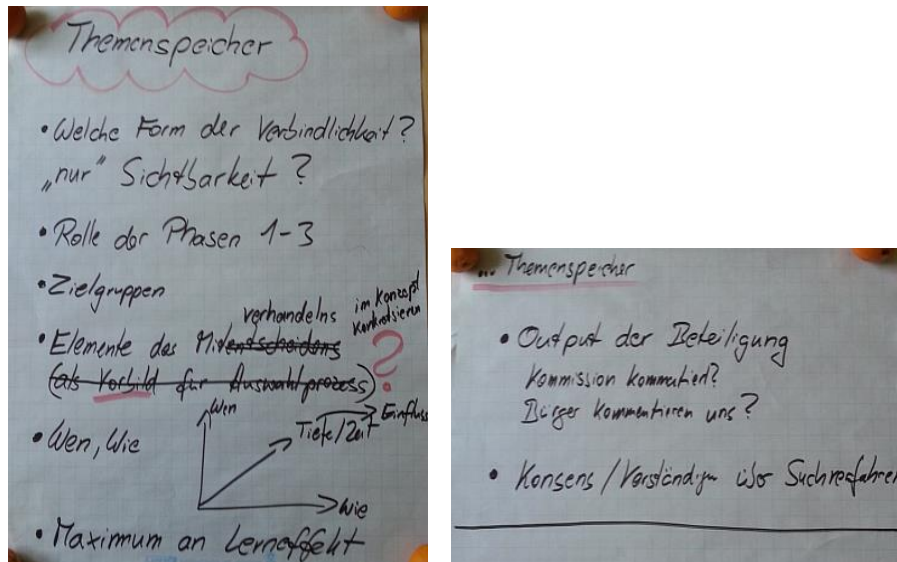 Themenspeicher
• Welche Form der Verbindlichkeit?
„nur“ Sichtbarkeit?
• Rolle der Phasen 1-3
• Zielgruppen
verhandelns
im Konzept
konkretisieren
• Elemente des Mitentscheidens ?
(als Vorbild für Auswahlprozess)
Wen
Tiefe/Zeit → Einfluss
• Wen, Wie
Wie
• Maximum an Lerneffekt
... Themenspeicher
• Output der Beteiligung
Kommission kommentiert?
Bürger kommentieren uns?
• Konsens/Verständigung über Suchverfahren